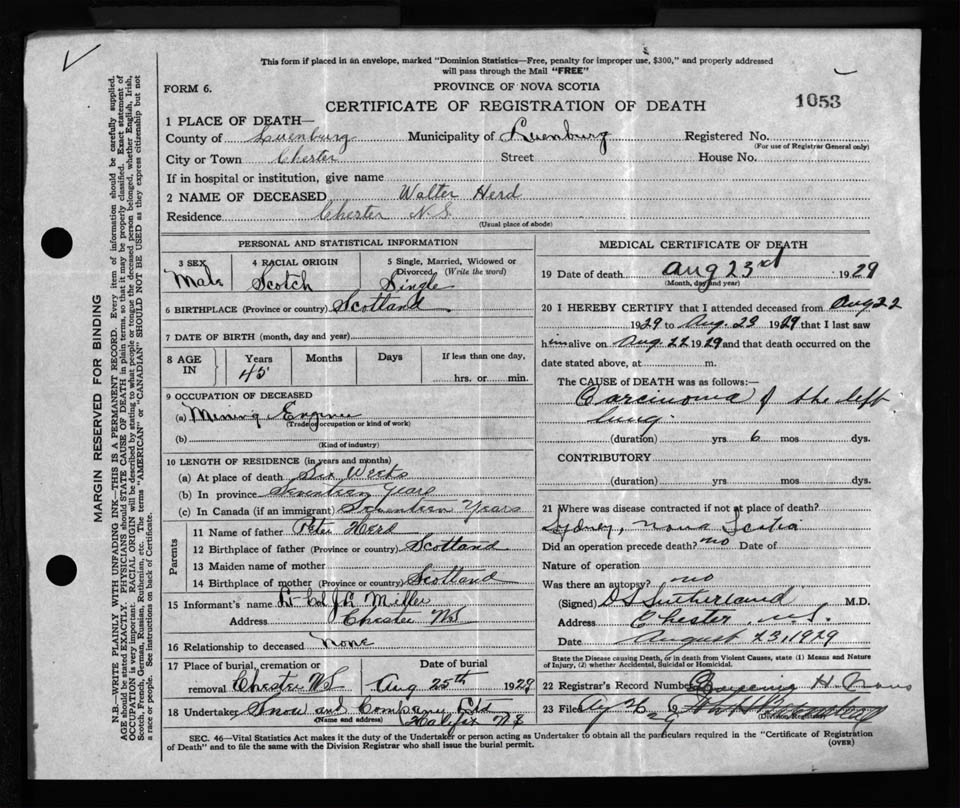 This form if placed in an envelope, marked "Dominion Statistics—Free, penalty for improper use, $300," and properly addressed
will pass through the Mail "FREE"
FORM 6.
PROVINCE OF NOVA SCOTIA
CERTIFICATE OF REGISTRATION OF DEATH
1053
MARGIN RESERVED FOR BINDING
N.B.—WRITE PLAINLY WITH UNFADING INK—THIS IS A PERMANENT RECORD. Every item of information should be carefully supplied.
AGE should be stated EXACTLY. PHYSICIANS should STATE CAUSE OF DEATH in plain terms, so that it may be properly classified. Exact statement of
OCCUPATION is very important. RACIAL ORIGIN will be described by stating to what people or tongue the deceased person belonged, whether English, Irish,
Scotch, French, German, Russian, Ruthenian, etc. The terms "AMERICAN" or "CANADIAN" SHOULD NOT BE USED as they express citizenship but not
a race or people. See instructions on back of Certificate.
1 PLACE OF DEATH—
County of Luenburg Municipality of Luenburg Registered No.
(For use of Registrar General only)
City or Town Chester Street House No.
If in hospital or institution, give name
2 NAME OF DECEASED Walter Herd
Residence Chester N.S.
(Usual place of abode)
PERSONAL AND STATISTICAL INFORMATION
3 SEX Male
4 RACIAL ORIGIN Scotch
5 Single, Married, Widowed or
Divorced (Write the word)
Single
6 BIRTHPLACE (Province or country) Scotland
7 DATE OF BIRTH (month, day and year)
8 AGE IN Years Months Days If less than one day,
45 hrs. or min.
9 OCCUPATION OF DECEASED
(a) Mining Engineer
(Trade, occupation or kind of work)
(b)
(Kind of industry)
10 LENGTH OF RESIDENCE (in years and months)
(a) At place of death Six Weeks
(b) In province Seventeen Years
(c) In Canada (if an immigrant) Seventeen Years
Parents
11 Name of father Peter Herd
12 Birthplace of father (Province or country) Scotland
13 Maiden name of mother
14 Birthplace of mother (Province or country) Scotland
15 Informant's name Lt-Col J L Miller
Address Chester NS
16 Relationship to deceased None
17 Place of burial, cremation or
removal Chester NS
Date of burial
Aug 25th 1929
18 Undertaker Snow and Company Ltd
(Name and address) Halifax NS
MEDICAL CERTIFICATE OF DEATH
19 Date of death Aug 23rd 1929
(Month, day and year)
20 I HEREBY CERTIFY that I attended deceased from Aug 22
1929 to Aug. 23 1929 that I last saw
him alive on Aug 22 1929 and that death occurred on the
date stated above, at m.
The CAUSE OF DEATH was as follows:—
Carcinoma of the left
lung.
(duration) yrs 6 mos dys.
CONTRIBUTORY
(duration) yrs mos dys.
21 Where was disease contracted if not at place of death?
Sydney, Nova Scotia
Did an operation precede death? no Date of
Nature of operation
Was there an autopsy? no
(Signed) D S Sutherland M.D.
Address Chester, N.S.
Date August 23, 1929
State the Disease causing Death, or in death from Violent Causes, state (1) Means and Nature
of Injury, (2) whether Accidental, Suicidal or Homicidal.
22 Registrar's Record Number
23 Filed 29
(Division Registrar)
SEC. 46—Vital Statistics Act makes it the duty of the Undertaker or person acting as Undertaker to obtain all the particulars required in the "Certificate of Registration
of Death" and to file the same with the Division Registrar who shall issue the burial permit.
(OVER)